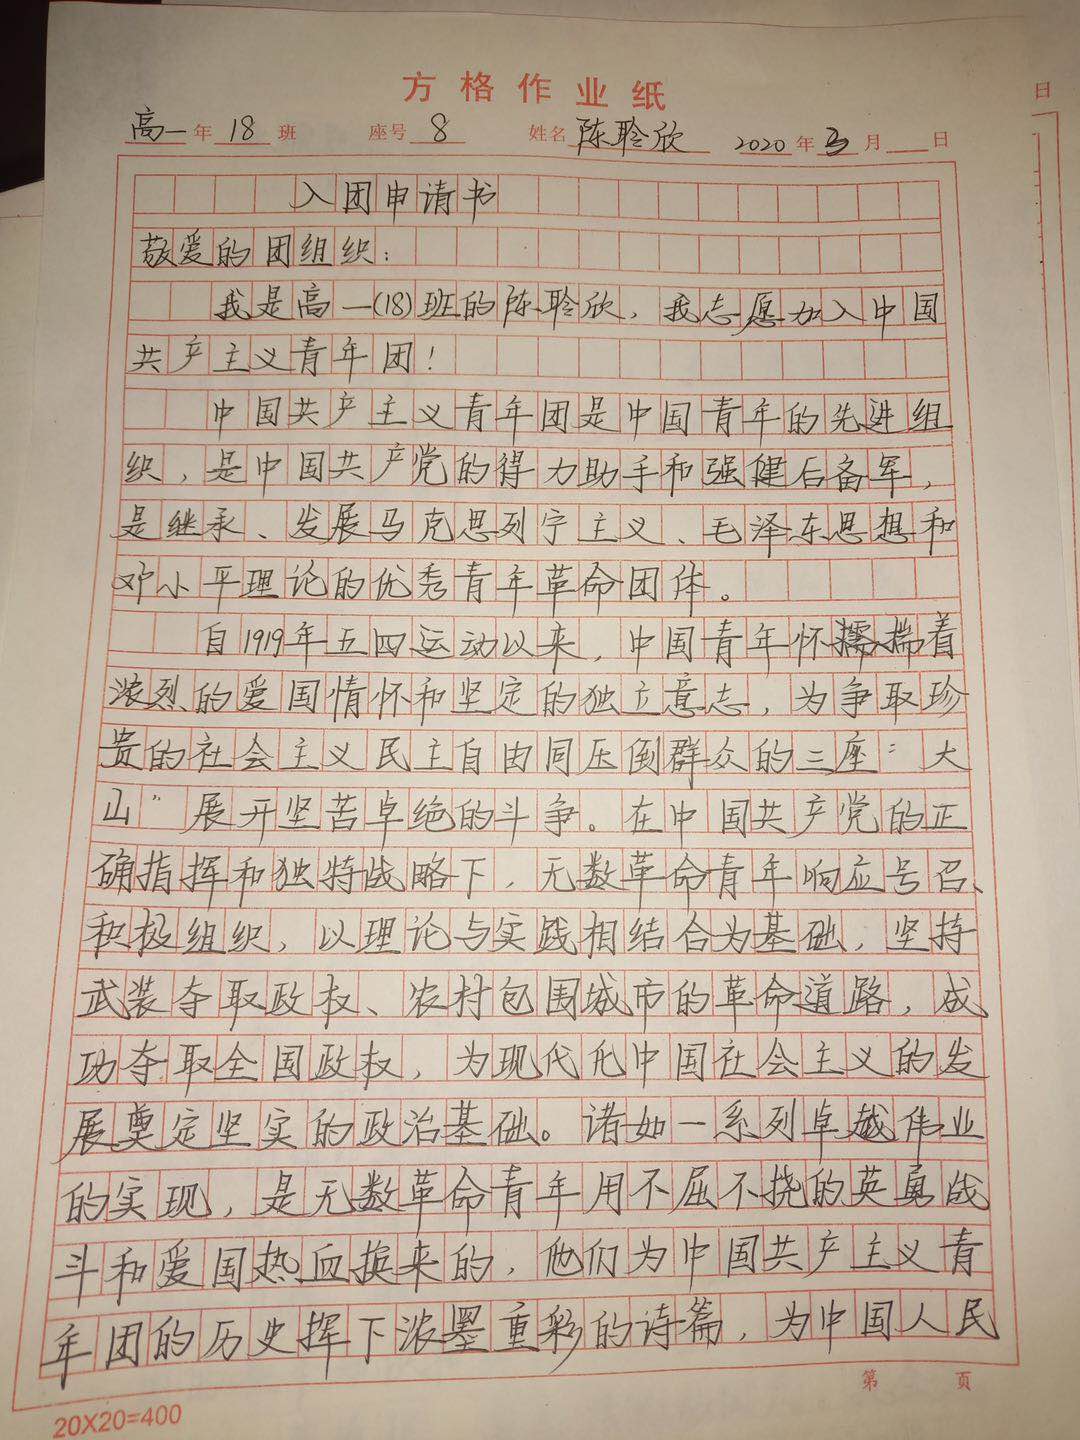 方格作业纸
日
高一年 18班 座号 8 姓名 陈聆欣 2020年3月 日
入团申请书
敬爱的团组织：
我是高一(18)班的陈聆欣，我志愿加入中国
共产主义青年团！
中国共产主义青年团是中国青年的先进组
织，是中国共产党的得力助手和强健后备军，
是继承、发展马克思列宁主义、毛泽东思想和
邓小平理论的优秀青年革命团体。
自1919年五四运动以来，中国青年怀揣着
浓烈的爱国情怀和坚定的独立意志，为争取珍
贵的社会主义民主自由同压倒群众的三座“大
山”展开坚苦卓绝的斗争。在中国共产党的正
确指挥和独特战略下，无数革命青年响应号召、
积极组织，以理论与实践相结合为基础，坚持
武装夺取政权、农村包围城市的革命道路，成
功夺取全国政权，为现代化中国社会主义的发
展奠定坚实的政治基础。诸如一系列卓越伟业
的实现，是无数革命青年用不屈不挠的英勇战
斗和爱国热血换来的，他们为中国共产主义青
年团的历史挥下浓墨重彩的诗篇，为中国人民
第 页
20X20=400